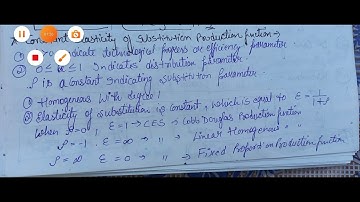 Constant Elasticity of Substitution Production function →
indicate technological progress or efficiency parameter
0 ≤ α ≤ 1 Indicates distribution parameter
ρ is a Constant Indicating Substitution parameter
① Homogenous With degree 1
② Elasticity of Substitution is Constant, which is equal to ε = 1/1+ρ
When ρ=0, ε=1 → CES → Cobb Douglas Production function
ρ = -1, ε = ∞ → " " → Linear Homogenous "
ρ = ∞ ε = 0 → " " → Fixed Proportion Production function